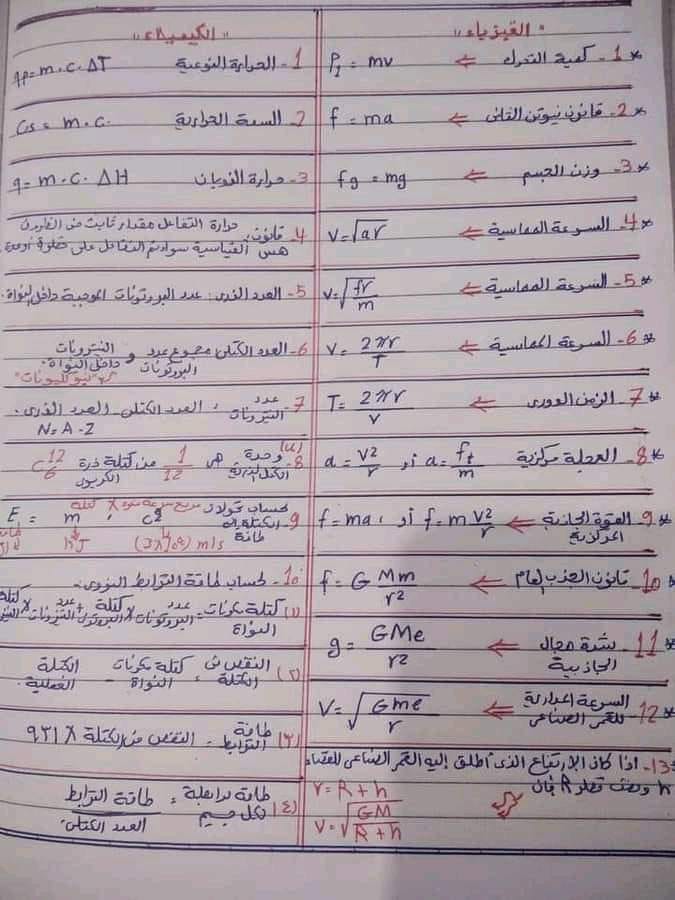 "الفيزياء"
1- كمية التحرك ⇐ P₁ = mv
2- قانون نيوتن الثاني ⇐ f = ma
3- وزن الجسم ⇐ fg = mg
4- السرعة المماسية ⇐ v = √ar
5- السرعة المماسية ⇐ v = √(fr/m)
6- السرعة المماسية ⇐ v = 2πr/T
7- الزمن الدورى ⇐ T = 2πr/v
8- العجلة مركزية a = v²/r أو a = f₁/m
9- القوة الجاذبة المركزية ⇐ f = ma ، أو f = m v²/r
10- قانون الجذب العام ⇐ f = G Mm/r²
11- شدة مجال الجاذبية ⇐ g = GMe/r²
12- السرعة المدارية للقمر الصناعى ⇐ V = √(Gme/r)
13- اذا كان الإرتفاع الذى أطلق إليه القمر الصناعى للفضاء
h ونصف قطر R فإن
r = R + h
v = √(GM/(R + h))
"الكيمياء"
1- الحرارة النوعية qp = m.c.ΔT
2- السعة الحرارية Cs = m.c.
3- حرارة الذوبان q = m.c. ΔH
4- قانون هس حرارة التفاعل مقدار ثابت فى الظروف
القياسية سواء تم التفاعل على خطوة أو عدة
5- العدد الذرى: عدد البروتونات الموجبة داخل النواة.
6- العدد الكتلى مجموع عدد البروتونات و النيترونات
داخل النواة.
"نيوكليونات"
7- عدد النيترونات = العدد الكتلى - العدد الذرى.
N = A - Z
8- وحدة الكتل الذرية (u) هى 1/12 من كتلة ذرة الكربون C 12 6
9- لحساب تحولات الكتلة إلى طاقة
E = m . c²
(3×10⁸) m/s
10- لحساب طاقة الترابط النووى.
(١) كتلة مكونات النواة = عدد البروتونات × كتلة البروتون + عدد النيترونات × كتلة
(٢) النقص فى الكتلة = كتلة مكونات النواة - الكتلة الفعلية.
(٣) طاقة الترابط = النقص فى الكتلة × ٩٣١
(٤) طاقة ترابط لكل جسيم = طاقة الترابط / العدد الكتلى